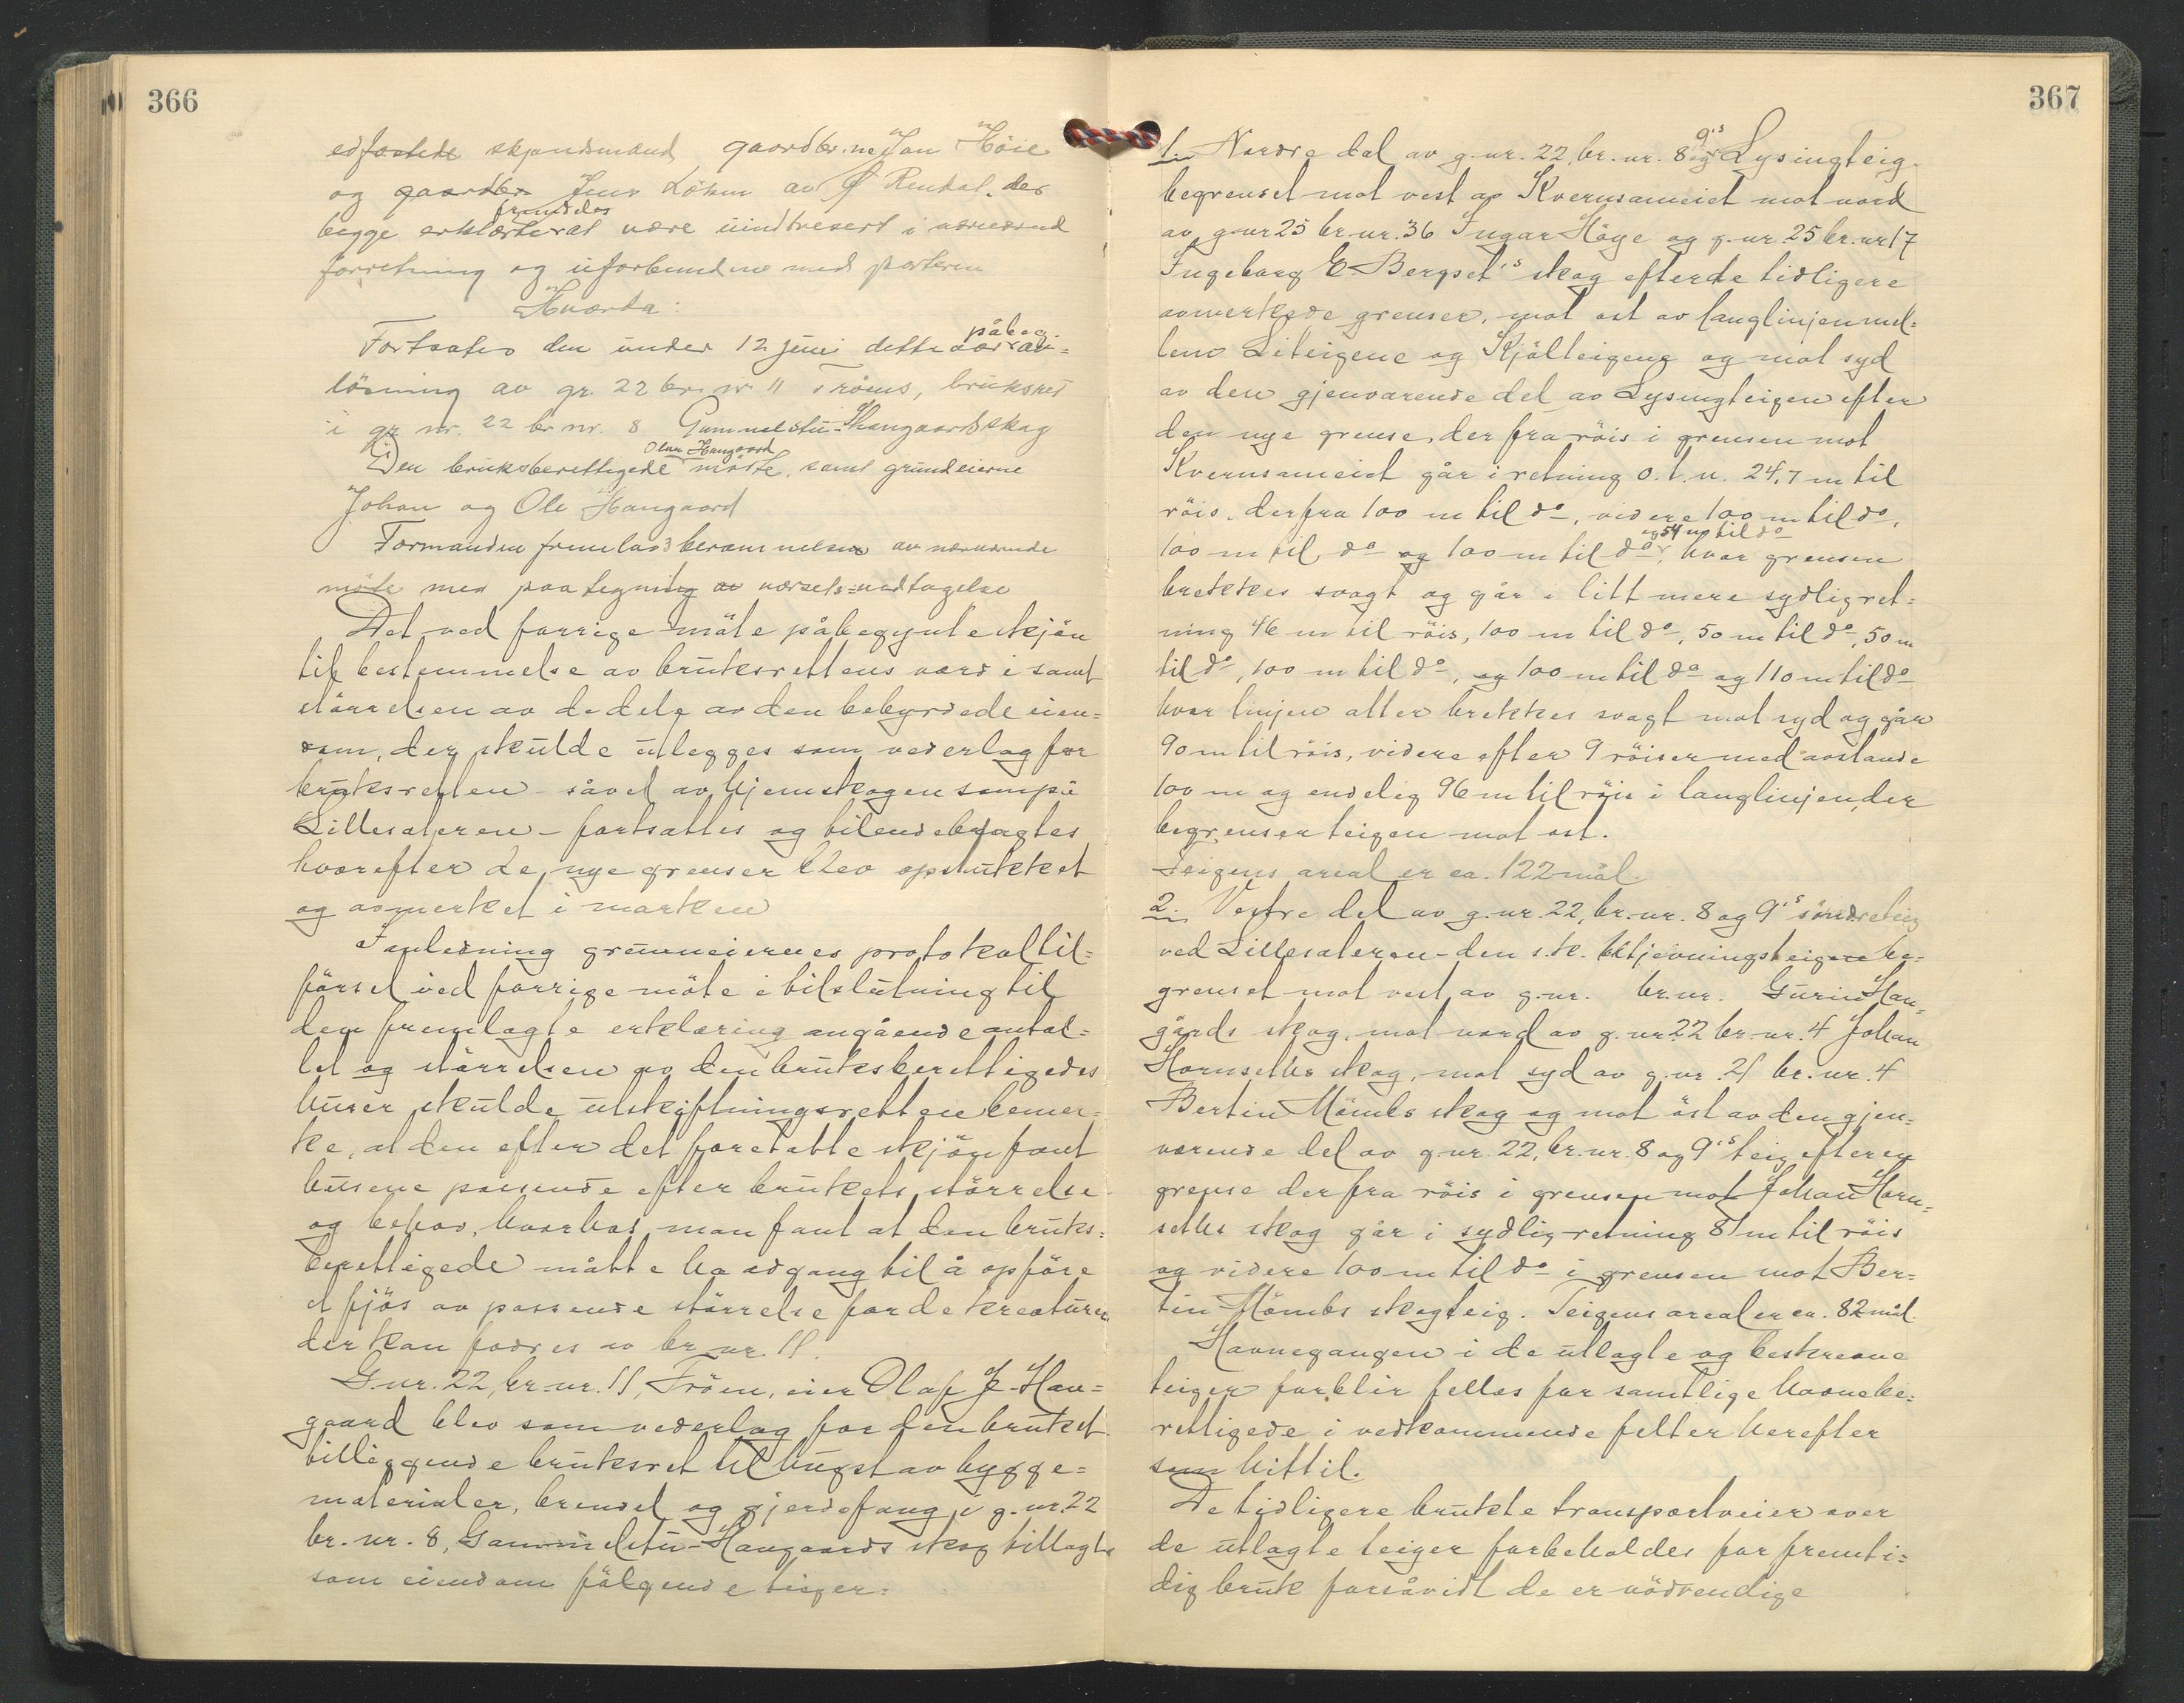 366
edfæstede skjøndsmænd gaardbr.ne Jon Höie
og gaardbr. Jens Löken av Ø Rendal, der
begge erklærte fremdeles at være uindtresert i nærværend
forretning og uforbundne med parterne
Hvorda:
Fortsates den under 12 juni dette aar påbeg. av=
lösning av gr. 22 br. nr 11 Tröens, bruksret
i gr. nr. 22 br nr. 8 Gammelstu-Haugaardskog
Den bruksberettigede Olav Haugaard mötte, samt grundeierne
Johan og Ole Haugaard
Formanden fremla berammelsen av nærværende
möte med paategning av varsels-vedtagelse
Det ved forrige möte påbegynte skjön
til bestemmelse av bruksrettens værdi samt
störrelsen av de dele av den bebyrdede eien=
dom, der skulde utlegges som vederlag for
bruksretten – såvel av hjemskogen som på
Lillesæteren – fortsattes og tilendebragtes
hvorefter de nye grenser blev opstukket
og avmerket i marken
I anledning grunneiernes protokoltil=
försel ved forrige möte i tilslutning til
den fremlagte erklæring angående antal=
let og störrelsen av den bruksberettigedes
huser skulde utskiftningsretten bemer=
ke, at den efter det foretatte skjön fant
husene passende efter brukets störrelse
og behov, hvorhos man fant at den bruks=
berettigede måtte ha adgang til å opföre
et fjös av passende störrelse for de kreaturer
der kan fødres av br. nr. 11.
G.nr. 22, br.nr. 11, Tröen, eier Olaf J. Hau=
gaard blev som vederlag for den bruket
tilliggende bruksret til hugst av bygge=
materialer, brensel og gjerdefang i g.nr. 22
br. nr. 8, Gammelstu-Haugaards skog tillagt
som eiendom fölgende teiger:
367
1. Nordre del av g.nr. 22, br. nr. 8 og 9's Lysingteig.
begrenset mot vest av Kvernsameiet mot nord
av g.nr 25 br.nr. 36 Ingar Höye og g.nr. 25 br.nr 17
Ingeborg E. Bergset's skog efter de tidligere
avmerkede grenser, mot ost av langlinjen mel=
lem Liteigene og Kjölteigene og mot syd
av den gjenværende del av Lysingteigen efter
den nye grense, der fra röis i grensen mot
Kvernsameiet går i retning o.t.n. 24,7 m til
röis, derfra 100 m til do, videre 100 m til do,
100 m til do og 100 m til do og 54 m til do, hvor grensen
brekkes svagt og går i litt mere sydlig ret=
ning 46 m til röis, 100 m til do, 50 m til do, 50 m
til do, 100 m til do, og 100 m til do og 110 m til do
hvor linjen atter brekkes svagt mot syd og går
90 m til röis, videre efter 9 röiser med avstande
100 m og endelig 96 m til röis i langlinjen, der
begrenser teigen mot ost.
Teigens areal er ca. 122 mål.
2. Vestre del av g.nr. 22, br.nr. 8 og 9's söndre teig
ved Lillesæteren – den s.k. Utjevningsteigen be=
grenset mot vest av g.nr. br.nr. Gurin Hau=
gårds skog, mot nord av g.nr. 22 br.nr. 4 Johan
Hornseths skog, mot syd av g.nr. 21 br.nr. 4
Bertin Mömbs skog og mot öst av den gjen=
værende del av g.nr. 22, br.nr. 8 og 9's teig efter en
grense der fra röis i grensen mot Johan Horn=
seths skog går i sydlig retning 81 m til röis
og videre 100 m til do i grensen mot Ber=
tin Mömbs skogteig. Teigens areal er ca. 82 mål.
Havnegangen i de utlagte og beskrevne
teiger forblir felles for samtlige havnebe=
rettigede i vedkommende felter herefter
som hittil.
De tidligere brukte transportveier over
de utlagte teiger forbeholdes for fremti=
dig bruk forsåvidt de er nödvendige